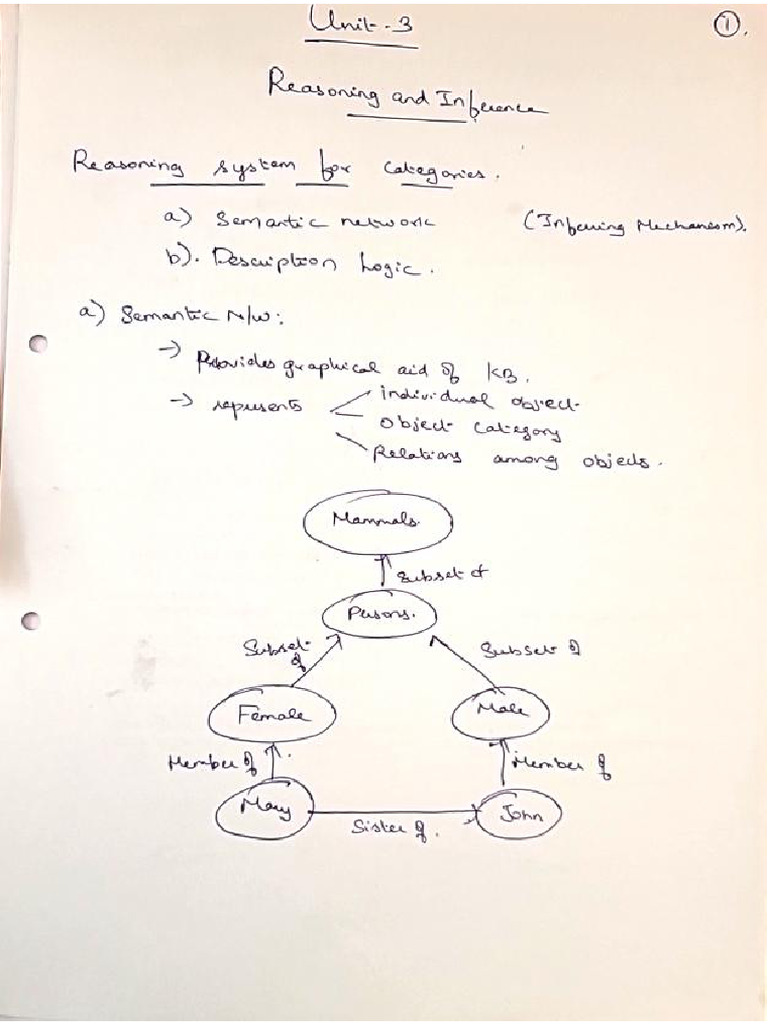 Unit-3
①.
Reasoning and Inference
Reasoning system for categories.
a) Semantic network (Inferring Mechanism).
b). Description Logic.
a) Semantic N/w:
→ Provides graphical aid of KB.
→ represents individual object
object category
Relations among objects.
Mammals.
Subset of
Persons.
Subset of
Subset of
Female
Male
Member of
Member of
Mary
John
Sister of.